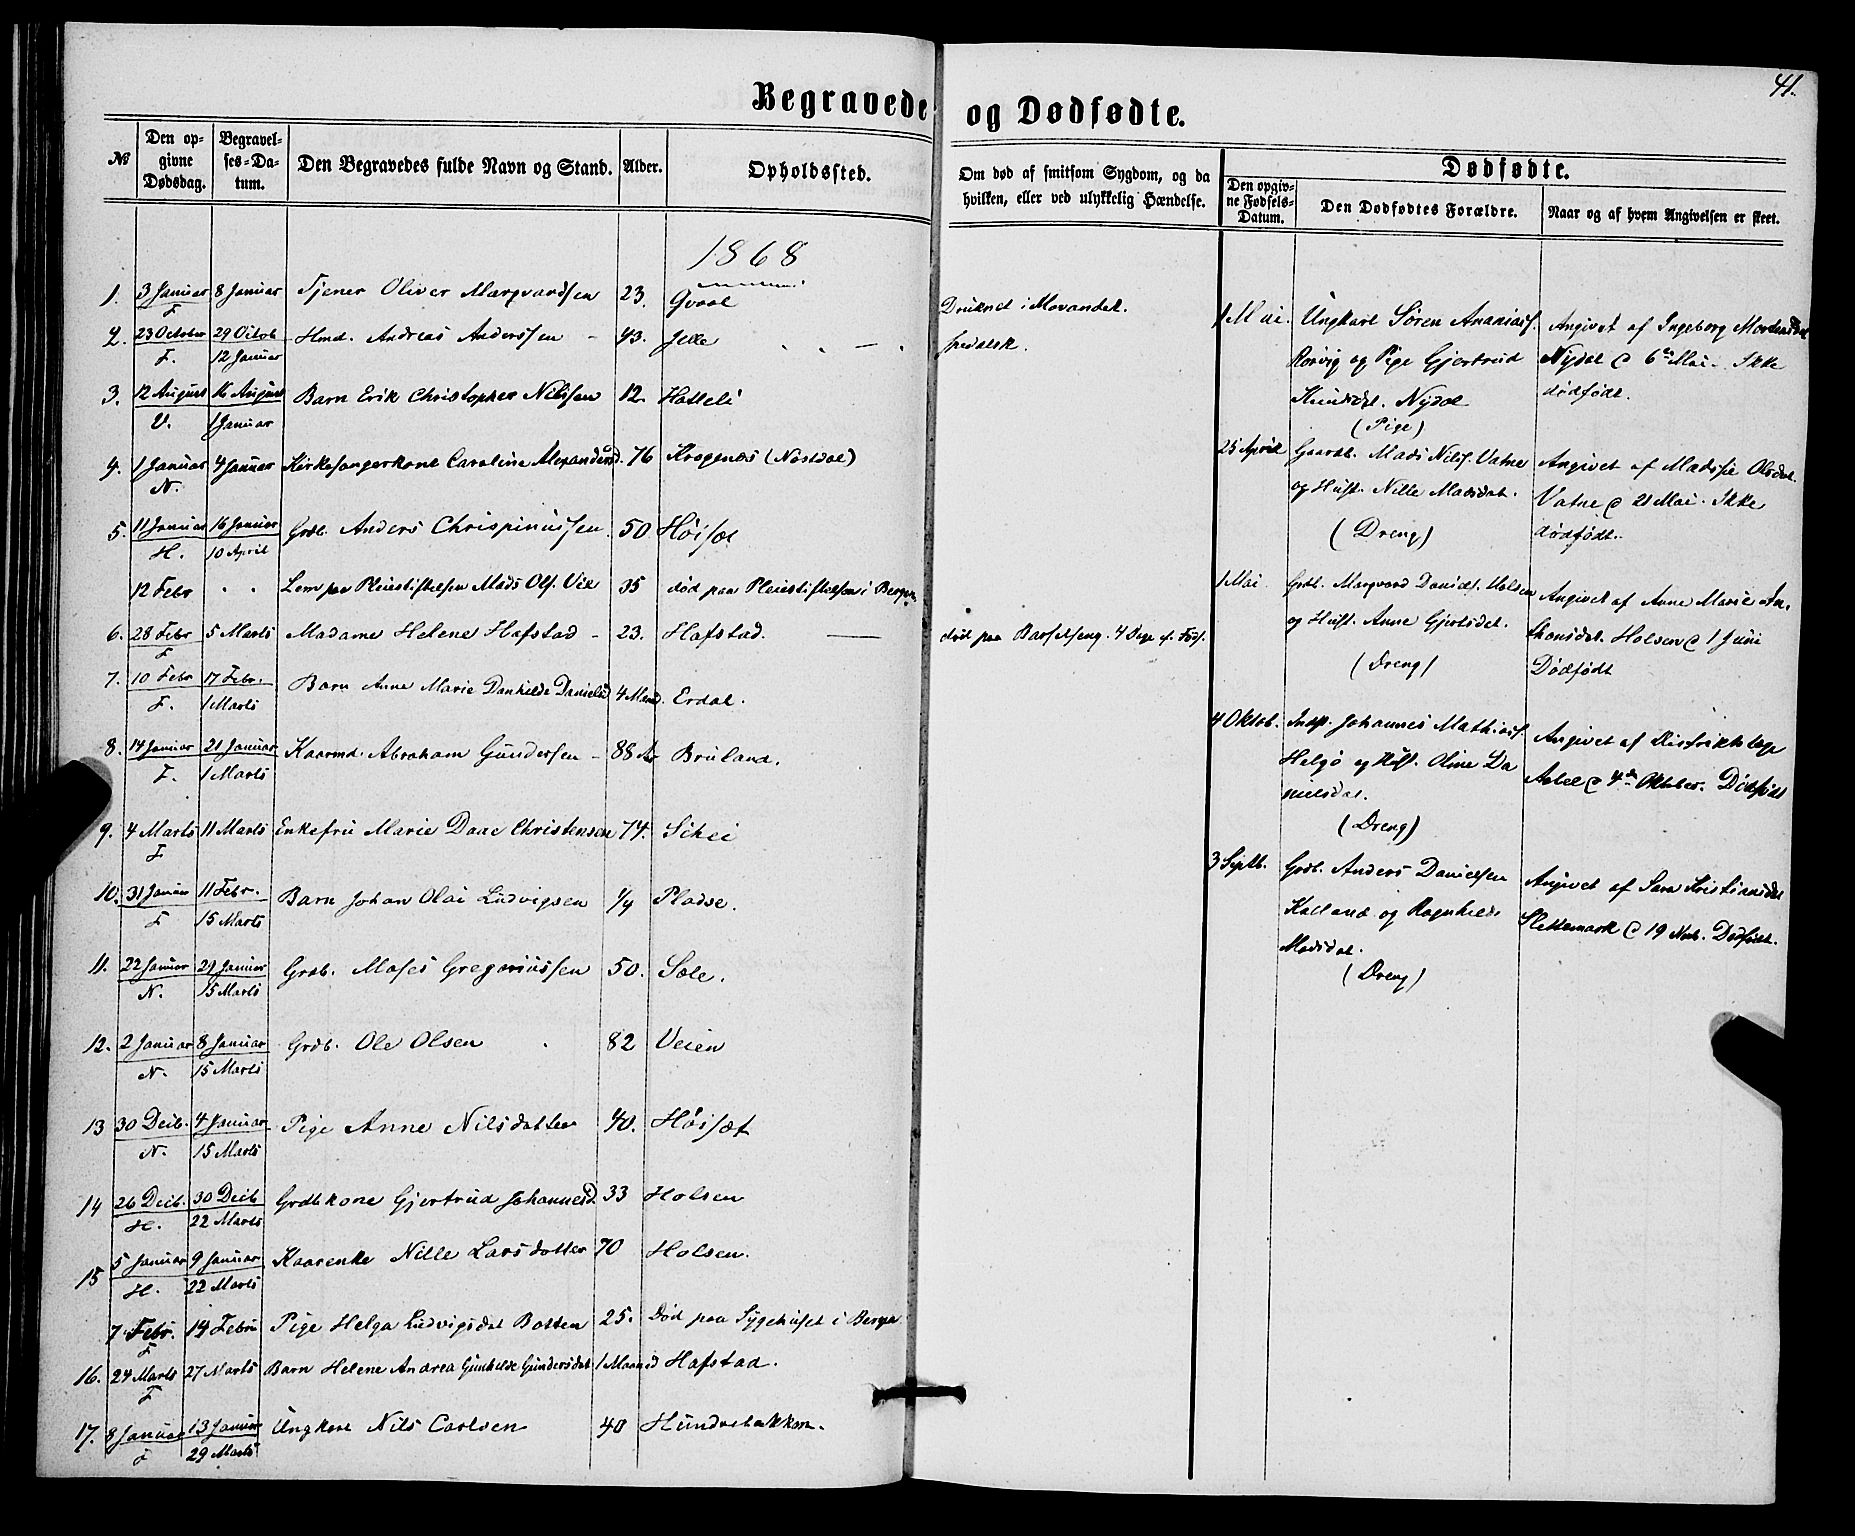 41.
Begravede og Dødfødte.
№
Den opgivne Dødsdag.
Begravelses-Datum.
Den Begravedes fulde Navn og Stand.
Alder.
Opholdssted.
Om død af smitsom Sygdom, og da hvilken, eller ved ulykkelig Hændelse.
Dødfødte.
Den opgivne Fødsels-Datum.
Den Dødfødtes Forældre.
Naar og af hvem Angivelsen er skeet.
1868
1. 3 Januar F 8 Januar Tjener Oliver Marqvardsen 23. Qvaal Druknet i Movandet.
2. 23 October F. 29 Octob 12 Januar Hmd. Andreas Anderssen - 43. Jelle spedalsk.
3. 12 August V. 16 August 1 Januar Barn Erik Christopher Nilssen 12. Hatleli
4. 1 Januar N. 4 Januar Kirkesangerkone Caroline Alexandersd. 76 Kragenæs (Næsdal)
5. 11 Januar H. 16 Januar 10 April Grdb. Anders Chrispinussen 50 Høisæt
12 Febr " " Lem paa Pleiestiftelsen Mads Ols. Vie 35 død paa Pleiestiftelsen i Bergen.
6. 28 Febr F 5 Marts Madame Helene Hafstad - 23. Hafstad. død paa Barselseng. 4 Dage ef. Føds.
7. 10 Febr F. 17 Febr. 1 Marts Barn Anne Marie Danhilde Danielsd 4 Maand. Erdal.
8. 14 Januar F. 21 Januar 1 Marts Kaarmd. Abraham Gundersen - 88 Ar Bruland.
9. 4 Marts F 11 Marts Enkefru Marie Daae Christensen 74. Schei
10. 31 Januar F 11 Febr. 15 Marts Barn Johan Olai Ludvigsen 1/4 Pladse.
11. 22 Januar N. 29 Januar 15 Marts Grdb. Moses Gregoriussen 50. Sæle.
12. 2 Januar N. 8 Januar 15 Marts Grdb. Ole Olsen 82 Veien
13 30 Decb. N. 4 Januar 15 Marts Pige Anne Nilsdatter 40. Høisæt
14 26 Decb. H. 30 Decb 22 Marts Grdbkone Gjertrud Johannesd. 33 Holsen
15 5 Januar H. 9 Januar 22 Marts Kaarenke Nille Larsdatter 70 Holsen.
7 Febr. F 14 Febru Pige Helga Ludvigsdat Botten 25. Død paa Sygehuset i Bergen
16. 24 Marts F 27 Marts Barn Helene Andrea Gunhilde Gundersdat 1 Maaned Hafstad.
17. 8 Januar F 13 Januar 29 Marts Ungkare Nils Carlsen 40
1 Mai. Ungkarl Søren Ananiass. Angivet af Ingeborg Mortensdat
Rørvig og Pige Gjertrud Nydal d 6te Mai. Ikke
Knudsdat. Nydal dødfødt.
(Pige)
25 April Gaardb. Mads Nils. Vatne Angivet af Madsie Olsdat.
og Hust. Nille Madsdat. Vatne d 21 Mai. Ikke
(Dreng) dødfødt.
1 Mai Grdb. Marqvard Daniels. Holsen Angivet af Anne Marie An-
og Hust. Anne Gjertsdat. thonsdat. Holsen d 1 Juni
(Dreng) Dødfødt
4 Oktob. Indst. Johannes Mathiass. Angivet af Distriktslæge
Helgø og Hust. Oline Da d 4de Oktober. Dødfødt
nielsdat.
(Dreng)
3 Septb. Grdb. Anders Danielsen Angivet af Sara Kristiansdat
Kalland og Ragnhilde Slettemark d 19 Novb. Dødfødt.
Madsdat.
(Dreng)